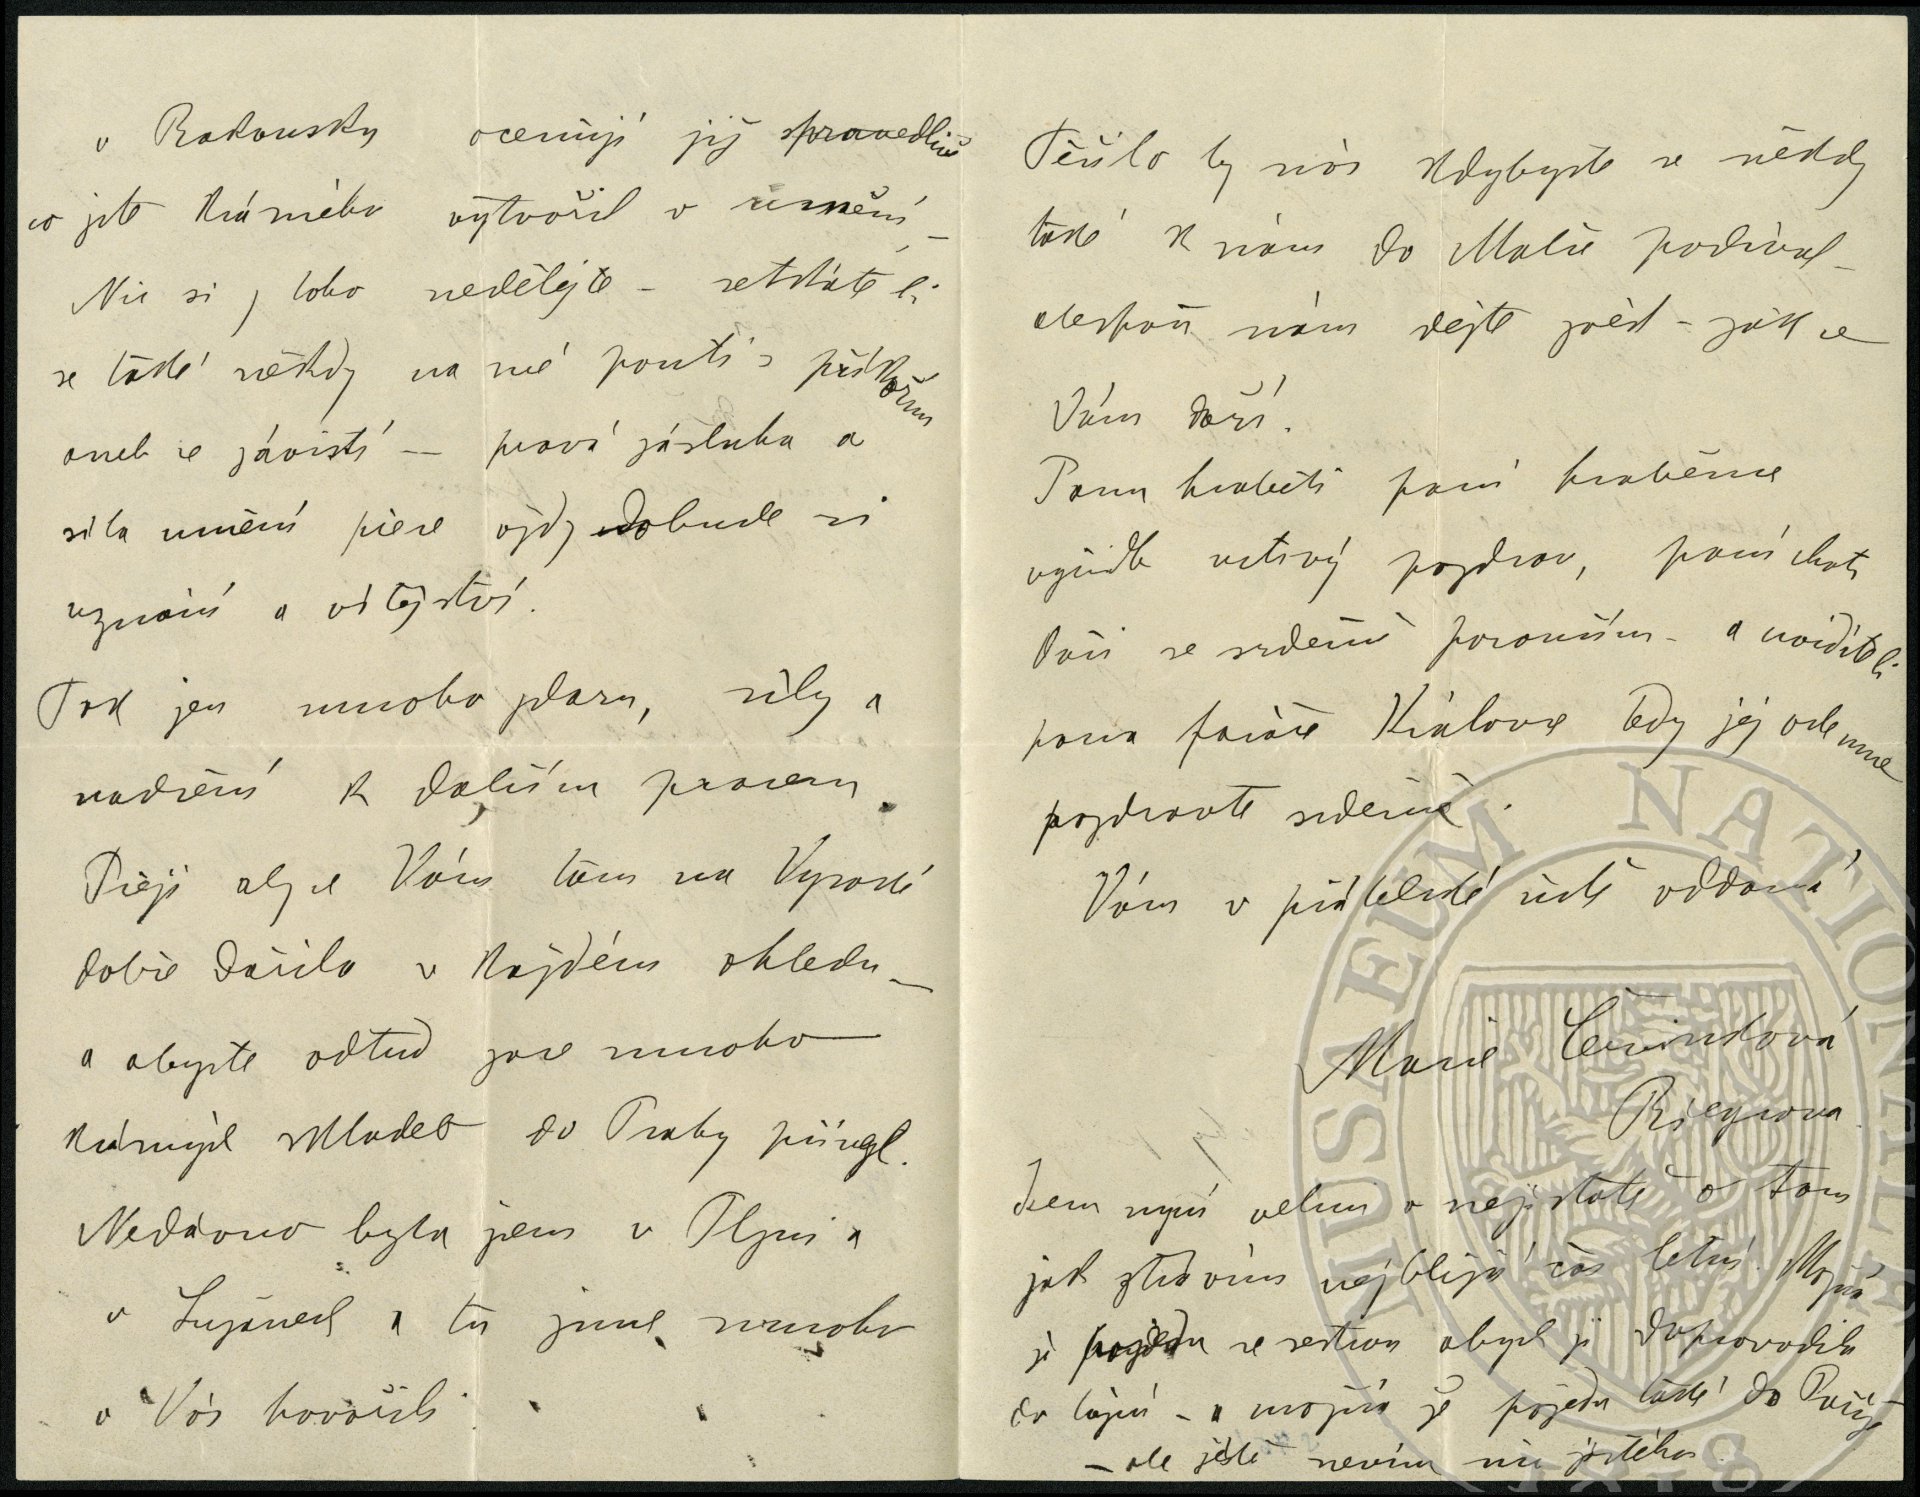 v Rakousku oceňují jej spravedlivě
co jste krásného vytvořil v umění –
Nic si z toho nedělejte – setkáte li
se také někdy na své pouti s příkořím
aneb se závistí — pravá zásluha a
síla umění přece vždy dobude si
uznání a vítězství.
Tak jen mnoho zdaru, síly a
nadšení k dalším pracem.
Přeji aby se Vám tam na Vysoké
dobře dařilo v každém ohledu –
a abyste odtud zase mnoho
krásných skladeb do Prahy přivezl.
Nedávno byla jsem v Plzni a
v Lužanech a tu jsme mnoho
o Vás hovořili.
Těšilo by nás kdybyste se někdy
také k nám do Malče podíval –
alespoň nám dejte zvěst – jak se
Vám daří.
Panu hraběti paní hraběnce
vyřiďte uctivý pozdrav, paní choti
Vaší se srdečně poroučím – a uvidíte li
pana faráře Královce tedy jej ode mne
pozdravte srdečně.
Vám v přátelské úctě oddaná
Marie Červinková
Riegrova
Jsem nyní velmi v nejistotě o tom
jak ztrávím nejbližší čas letní. Možná
že pojedu se sestrou abych ji doprovodila
do lázní – a možná že pojedu také do Paříže
– ale ještě nevím nic jistého.
MUSAEUM NATIONALE
1818